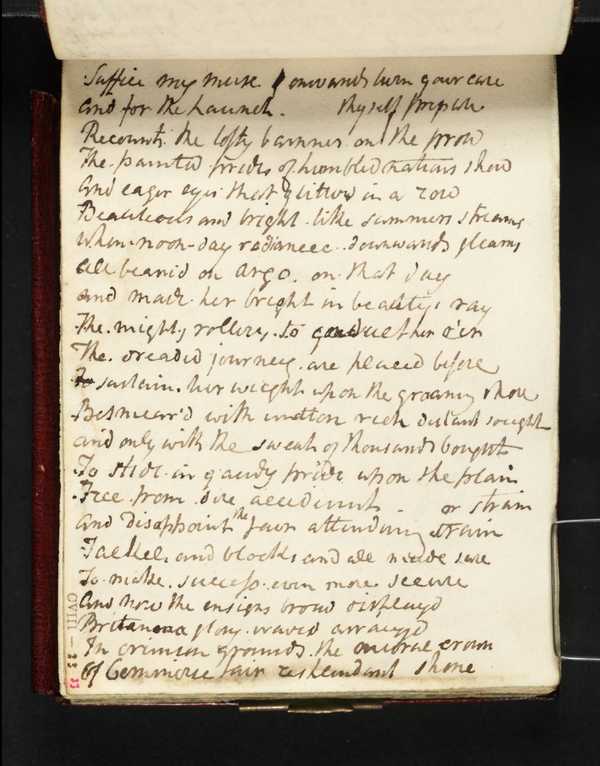 Suffice my muse onwards turn your care
and for the Launch. thyself prepare
Recount. the lofty banners on the prow
The painted prides of humbled nations show
and eager eyes that glitter in a row
Beauteous and bright. like summers streams
when noon-day radiance. downwards gleams
all beam'd on Argo. on that day
and made her bright in beautys ray
The mighty rollers. to conduct her o'er
The dreaded journey are placed before
To sustain. her weight upon the groaning shore
Besmear'd with mutton rich distant sought
and only with the sweat of thousands bought
To slide in gaudy pride upon the plain
Free from dire accident - or strain
and disappoint the fair attending train
Tackle, and blocks, and all made sure
To make. success. even more secure
and now the ensigns broad display'd
Britannia glory waved array'd
In crimson grounds. the mural crown
Of Commerce fair resplendant shone
CVIII — 23
23